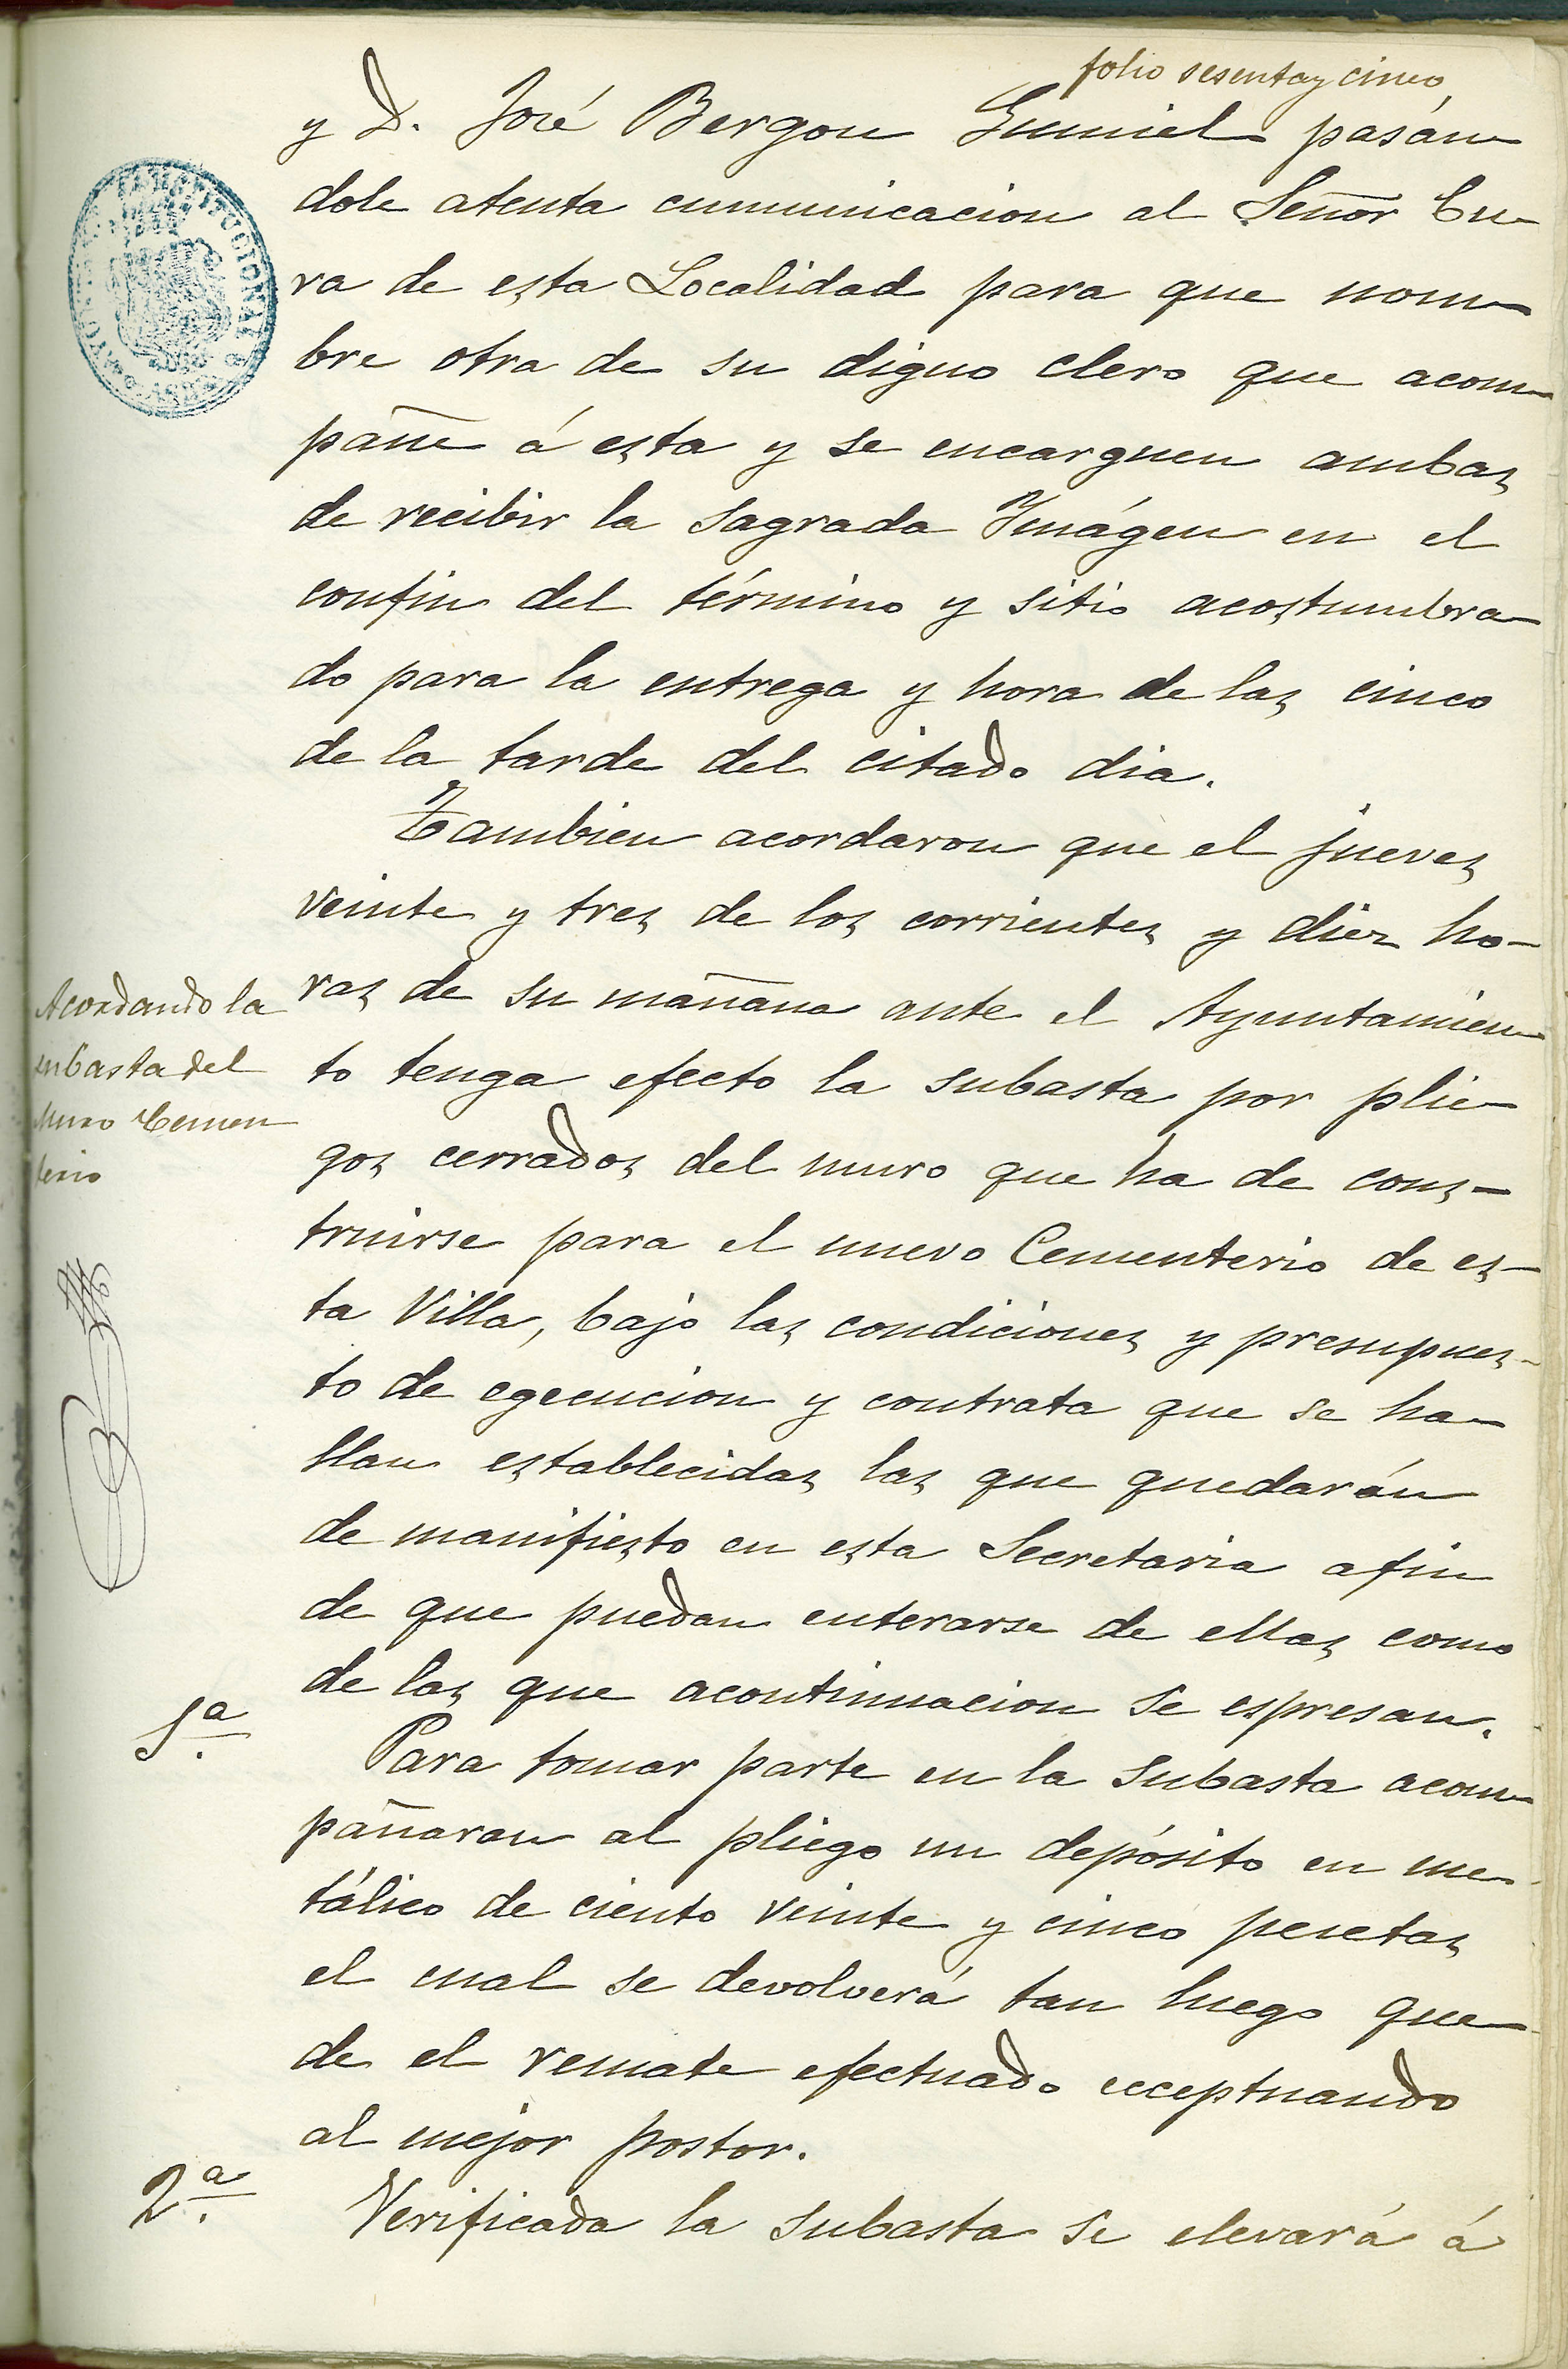 folio sesenta y cinco
y D. José Bergon Gumiel pasán
dole atenta cumunicacion al Señor Cu-
ra de esta Localidad para que nom-
bre otra de su digno clero que acom-
pañe á esta y se encarguen ambas
de recibir la Sagrada Ymágen en el
confin del término y sitio acostumbra-
do para la entrega y hora de las cinco
de la tarde del citado dia.
Tambien acordaron que el jueves
veinte y tres de los corrientes y diez ho-
ras de su mañana ante el Ayuntamien-
to tenga efecto la subasta por plie-
gos cerrados del muro que ha de cons-
truirse para el nuevo Cementerio de es-
ta Villa, bajo las condiciones y presupues-
to de egecucion y contrata que se ha-
llan establecidas las que quedarán
de manifiesto en esta Secretaria afin
de que puedan enterarse de ellas como
de las que acontinuacion se espresan.
Acordando la
subasta del
Muro Cemen
terio
1ª.
Para tomar parte en la subasta acom-
pañaran al pliego un depósito en me-
tálico de ciento veinte y cinco pesetas
el cual se devolverá tan luego que-
de el remate efectuado eceptuando
al mejor postor.
2ª.
Verificada la subasta se elevará á
CONSTITUCIONAL